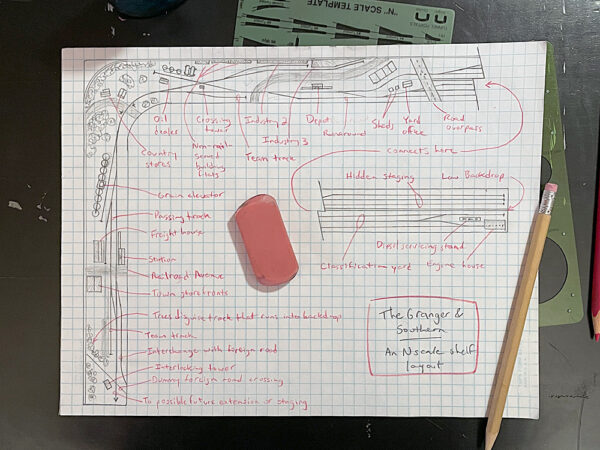 "N" SCALE TEMPLATE
Oil
dealer
Crossing
tower
Industry 2
Depot
Sheds
Yard
office
Road
overpass
Country
stores
Non-rail
served
building
flats
Team track
Industry 3
Runaround
Connects here
Grain elevator
Hidden staging
Low Backdrop
Passing track
Freight house
Station
Railroad Avenue
Town storefronts
Classification yard
Diesel servicing stand
Engine house
Trees disguise track that runs into backdrop
Team track
Interchange with foreign road
Interlocking tower
Dummy foreign road crossing
To possible future extension or staging
The Granger &
Southern
An N scale shelf
layout